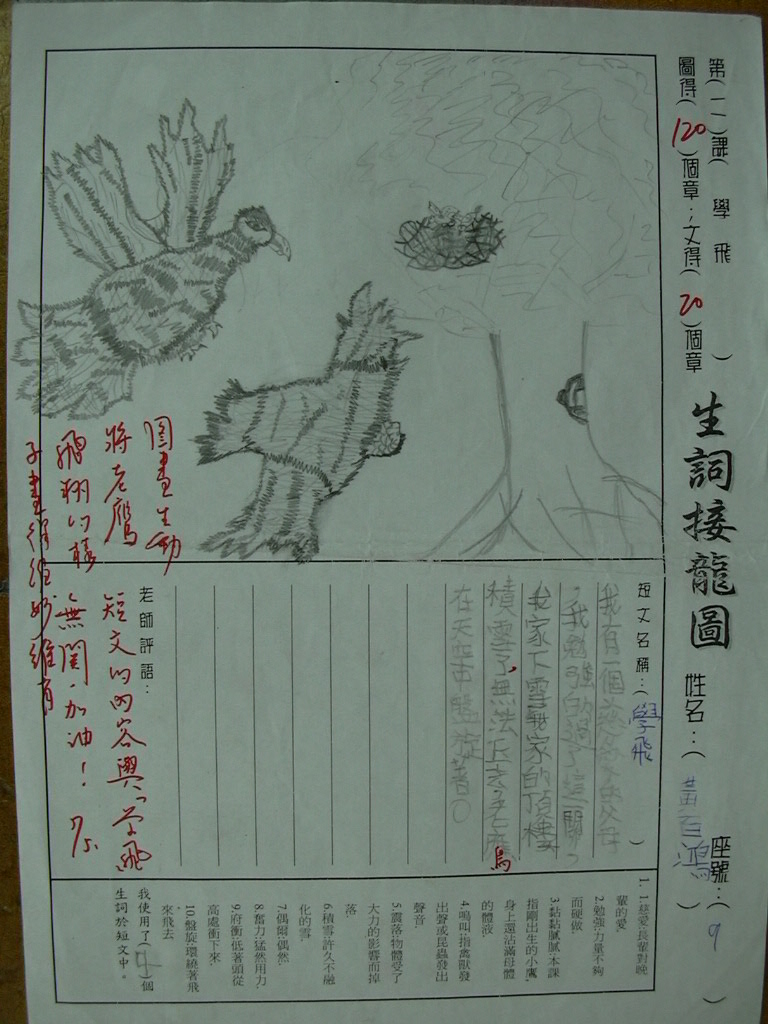 第(一)課(學飛)
圖得(120)個章；文得(20)個章
生詞接龍圖
姓名：(黃百鴻)
座號：(9)
短文名稱：(學飛)
我有一個慈愛的父母
，我勉強的過了這一關，
我家下雪我家的頂樓
積雪了無法丘去，老鷹
在天空中盤旋著。
鳥
老師評語：
圖畫生動
將老鷹
飛翔的樣
子畫得維妙維肖
短文的內容與"學飛"
無關，加油！
1. 1.慈愛:長輩對晚
輩的愛.
2.勉強:力量不夠
而硬做
3.黏黏膩膩:本課
指剛出生的小鷹,
身上還沾滿母體
的體液.
4.鳴叫:指禽獸發
出聲或昆蟲發出
聲音.
5.震落:物體受了
大力的影響而掉
落
6.積雪:許久不融
化的雪.
7.偶爾:偶然.
8.奮力:猛然用力.
9.府衝:低著頭從
高處衝下來
10.盤旋:環繞著飛
來飛去
我使用了(4)個
生詞於短文中。